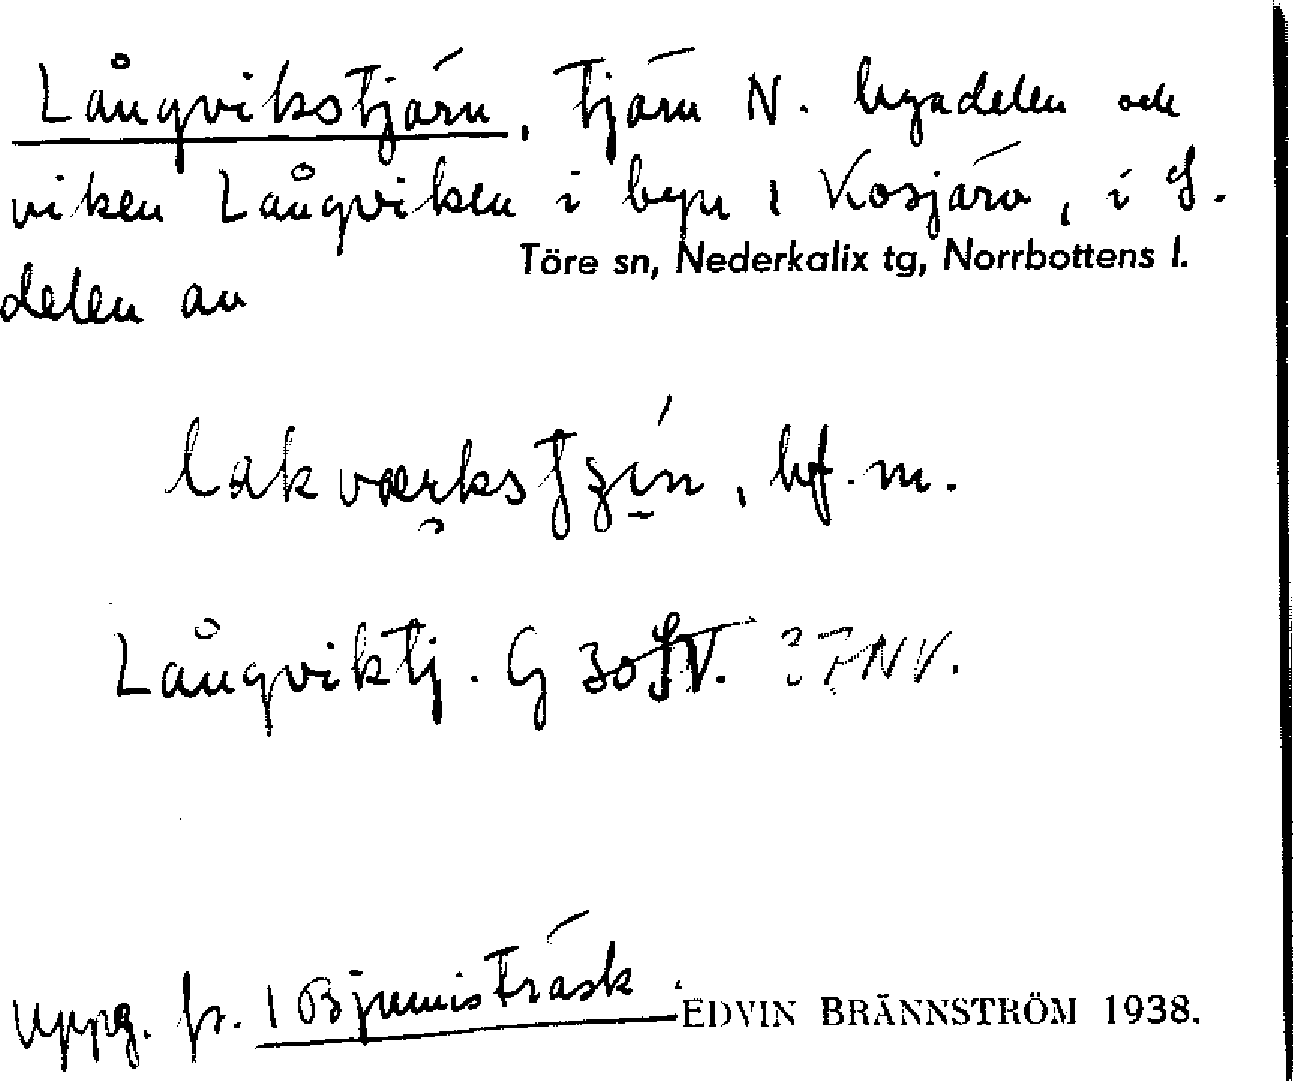 Långvikstjärn, tjärn N. byadelen och
viken Långviken i byn 1 Kosjärv, i S.
Töre sn, Nederkalix tg, Norrbottens l.
delen av
bf. m.
Långviktj. G 30 SV. 37 NV.
Uppg. fr. 1 Bjumisträsk.
EDVIN BRÄNNSTRÖM 1938.